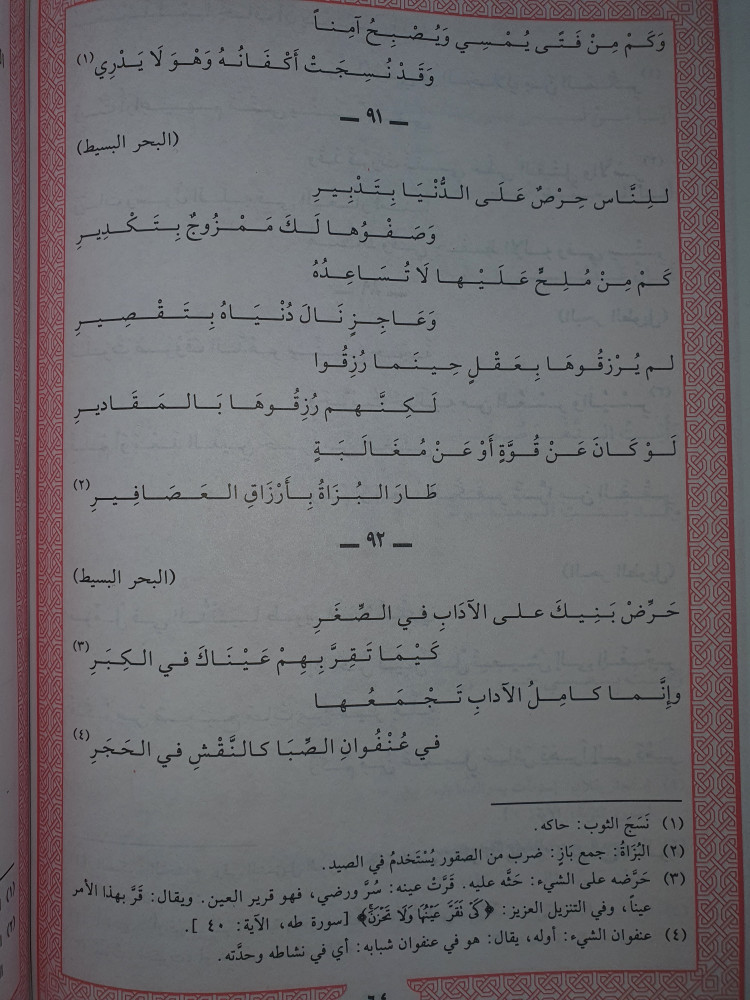 وَكَمْ مِنْ فَتًى يُمْسِي وَيُصْبِحُ آمِناً
وَقَدْ نُسِجَتْ أَكْفَانُهُ وَهْوَ لَا يَدْرِي(١)
— ٩١ —
(البحر البسيط)
للِنَّاس حِرْصٌ عَلَى الدُّنْيَا بِتَدْبِيرِ
وَصَفْوُهَا لَكَ مَمْزُوجٌ بِتَكْدِيرِ
كَمْ مِنْ مُلِحٍّ عَلَيْهَا لَا تُسَاعِدُهُ
وَعَاجِزٍ نَالَ دُنْيَاهُ بِتَقْصِيرِ
لم يُرْزَقُوهَا بِعَقْلٍ حِينَمَا رُزِقُوا
لَكِنَّهم رُزِقُوهَا بَالمَقَادیرِ
لَوْ كَانَ عَنْ قُوَّةٍ أَوْ عَنْ مُغَالَبَةٍ
طَارَ البُزَاةُ بِأَرْزَاقِ العَصَافِيرِ(٢)
— ٩٢ —
(البحر البسيط)
حَرِّضْ بَنِيكَ على الآدَابِ في الصِّغَرِ
كَيْمَا تَقِرَّ بِهِمْ عَيْنَاكَ في الكِبَرِ(٣)
وإِنَّما كامِلُ الآدابِ تَجْمَعُها
في عُنْفُوانِ الصِّبَا كالنَّقْشِ في الحَجَرِ(٤)
(١) نَسَجَ الثوب: حاكه.
(٢) البُزَاةُ: جمع بَازٍ: ضرب من الصقور يُسْتَخدمُ في الصيد.
(٣) حَرَّضه على الشيء: حَثَّه عليه. قَرَّتْ عينه: سُرَّ ورضي، فهو قرير العين. ويقال: قَرَّ بهذا الأمر
عيناً، وفي التنزيل العزيز: ﴿كَىْ نَقَرَّ عَيْنُهَا وَلَا تَحْزَنَ﴾ [سورة طه، الآية: ٤٠].
(٤) عنفوان الشيء: أوله، يقال: هو في عنفوان شبابه: أي في نشاطه وحدَّته.